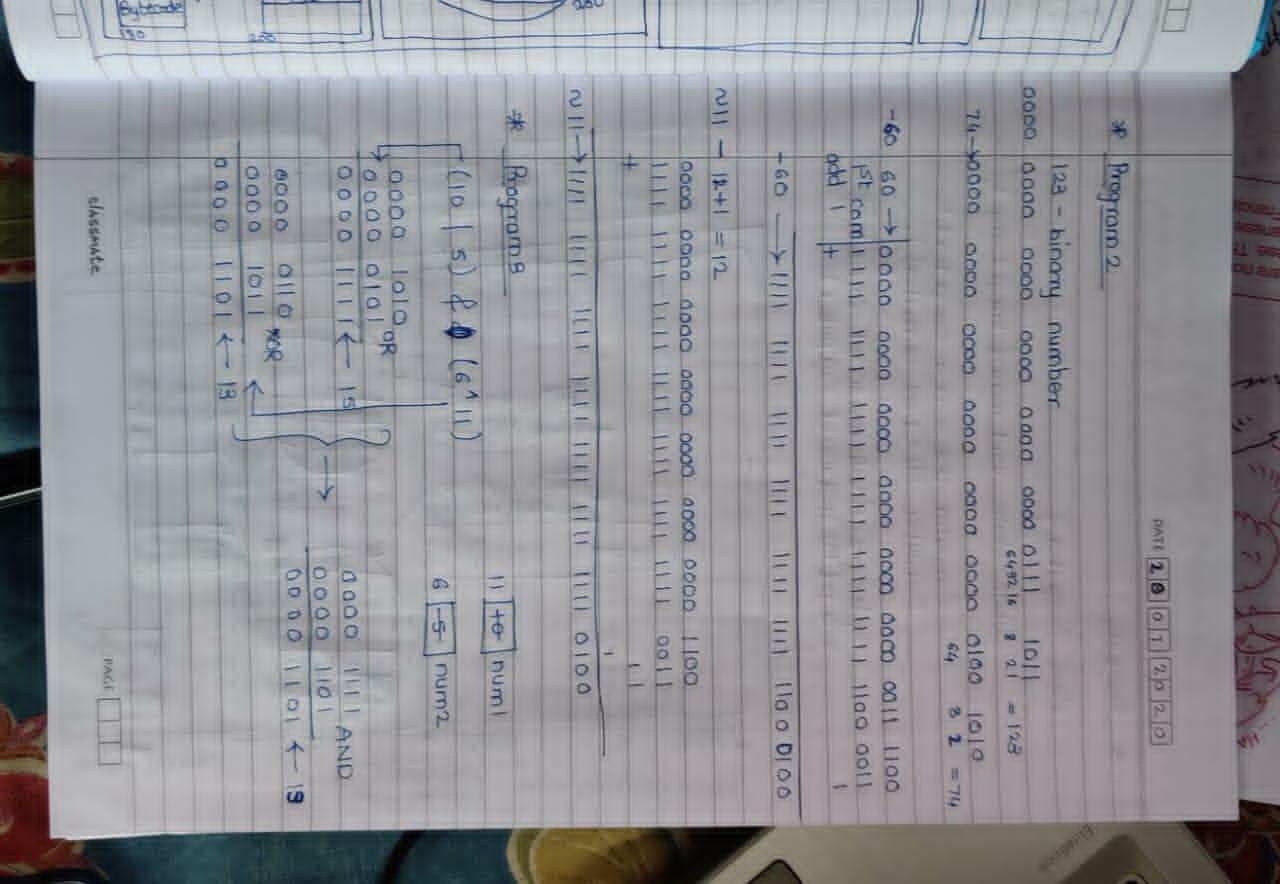 DATE 28 01 2020
* Program 2
123 - binary number
0000 0000 0000 0000 0000 0000 0111 1011
64 32 16 8 2 1 = 123
74 → 0000 0000 0000 0000 0000 0000 0100 1010
64 8 2 = 74
-60 60 → 0000 0000 0000 0000 0000 0000 0011 1100
1st com 1111 1111 1111 1111 1111 1111 1100 0011
add 1 + 1
-60 → 1111 1111 1111 1111 1111 1111 1100 0100
~11 - 12+1 = 12
0000 0000 0000 0000 0000 0000 0000 1100
1111 1111 1111 1111 1111 1111 1111 0011
+ 1
~11 → 1111 1111 1111 1111 1111 1111 1111 0100
* Program 8
11 +6 num1
(10 | 5) & (6 ^ 11)
6 -5 num2
0000 1010
0000 0101 OR
0000 1111 ← 15
0000 0110
0000 1011 XOR
0000 1101 ← 13
0000 1111 AND
0000 1101
0000 1101 ← 13
classmate
PAGE
Bytecode